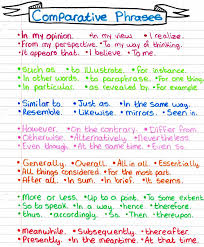 Comparative Phrases
• In my opinion. • In my view • I realize.
• From my perspective. • To my way of thinking.
• It appears that. • I believe. • To me.
• Such as. • to illustrate. • for instance.
• In other words. • to paraphrase. • For one thing.
• In particular. • as revealed by. • For example.
• Similar to. • Just as. • In the same way.
• Resemble. • Likewise. • mirrors. • Seen in.
• However. • On the contrary. • Differ from.
• Otherwise. • Alternatively. • Nevertheless.
• Even though. • At the same time. • Even so.
• Generally. • Overall. • All in all. • Essentially.
• All things considered. • For the most part.
• After all. • In sum. • In brief. • It seems.
• More or less. • Up to a point. • To some extent.
• So to speak. • In a way. • hence. • therefore.
• thus. • accordingly. • So. • Then. • thereupon.
• Meanwhile. • Subsequently. • thereafter.
• Presently. • In the meantime. • At that time.